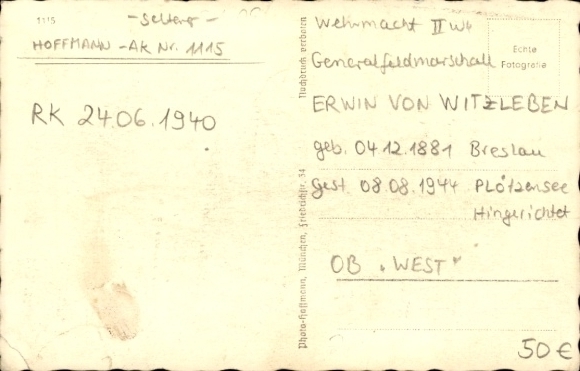 1115
- selten -
HOFFMANN - AK Nr. 1115
RK 24.06.1940
Photo-Hoffmann, München, Friedrichstr. 34
Nachdruck verboten
Wehrmacht II WK
Echte
Fotografie
Generalfeldmarschall
ERWIN VON WITZLEBEN
geb. 04.12.1881 Breslau
gest. 08.08.1944 PLÖTZENSEE
Hingerichtet
OB "WEST"
50 €